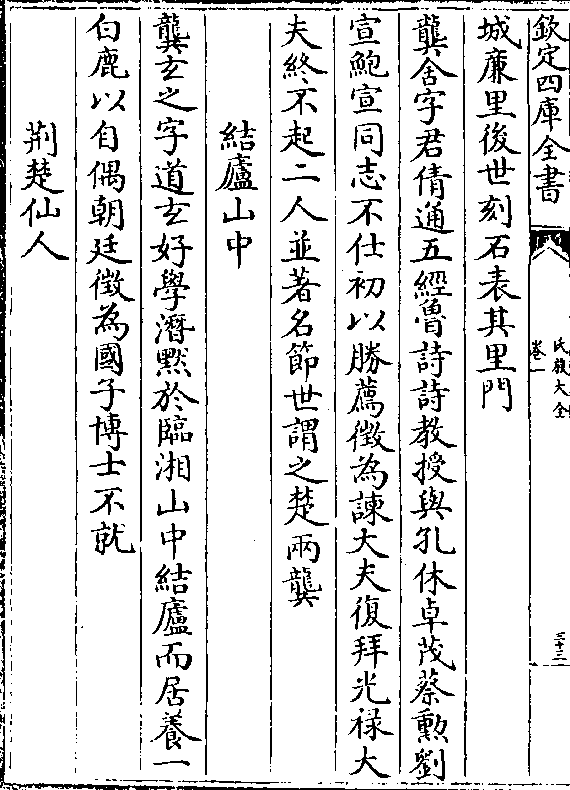 欽定四庫全書
氏族大全
卷一
三十三
城廉里後世刻石表其里門
龔舍字君倩通五經魯詩詩教授與孔休卓茂蔡勲劉
宣鮑宣同志不仕初以勝薦徵為諫大夫復拜光禄大
夫終不起二人並著名節世謂之楚兩龔
結廬山中
龔玄之字道玄好學潛默於臨湘山中結廬而居養一
白鹿以自偶朝廷徵為國子博士不就
荆楚仙人